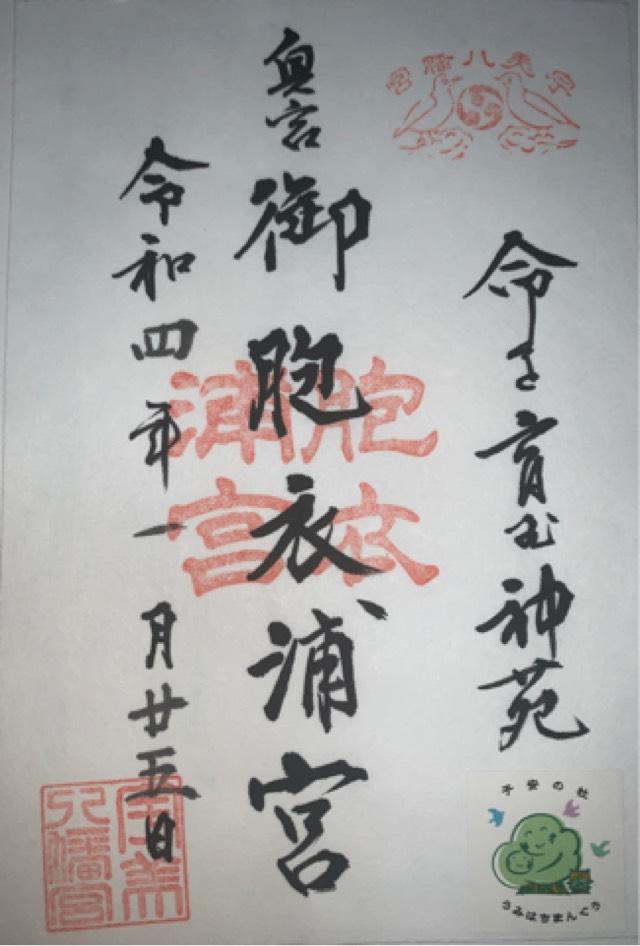 宇美八幡宮
命を育む神苑
子安の杜
うみはちまんぐう
奥宮
御胞衣浦宮
胞衣
浦宮
令和四年一月廿五日
宇美
八幡宮